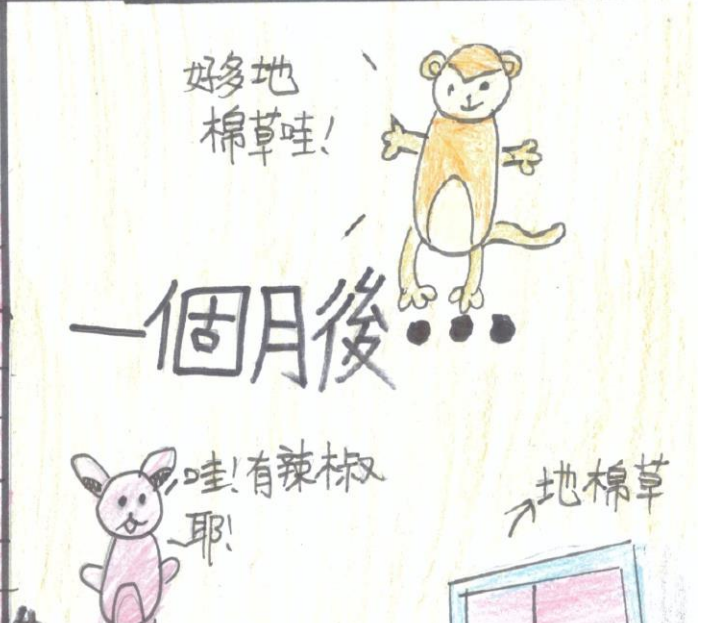 好多地
棉草哇!
一個月後...
哇!有辣椒
耶!
地棉草